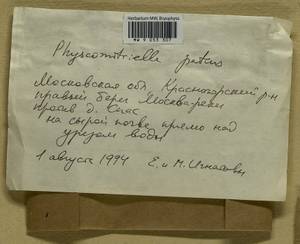 Herbarium MW, Bryophyta
MW 9 055 807
Physcomitrella patens
Московская обл. Красногорский р-н
правый берег Москва-реки
против д. Спас
на сырой почве прямо над
урезом воды
1 августа 1994 Е. и М. Игнатовы